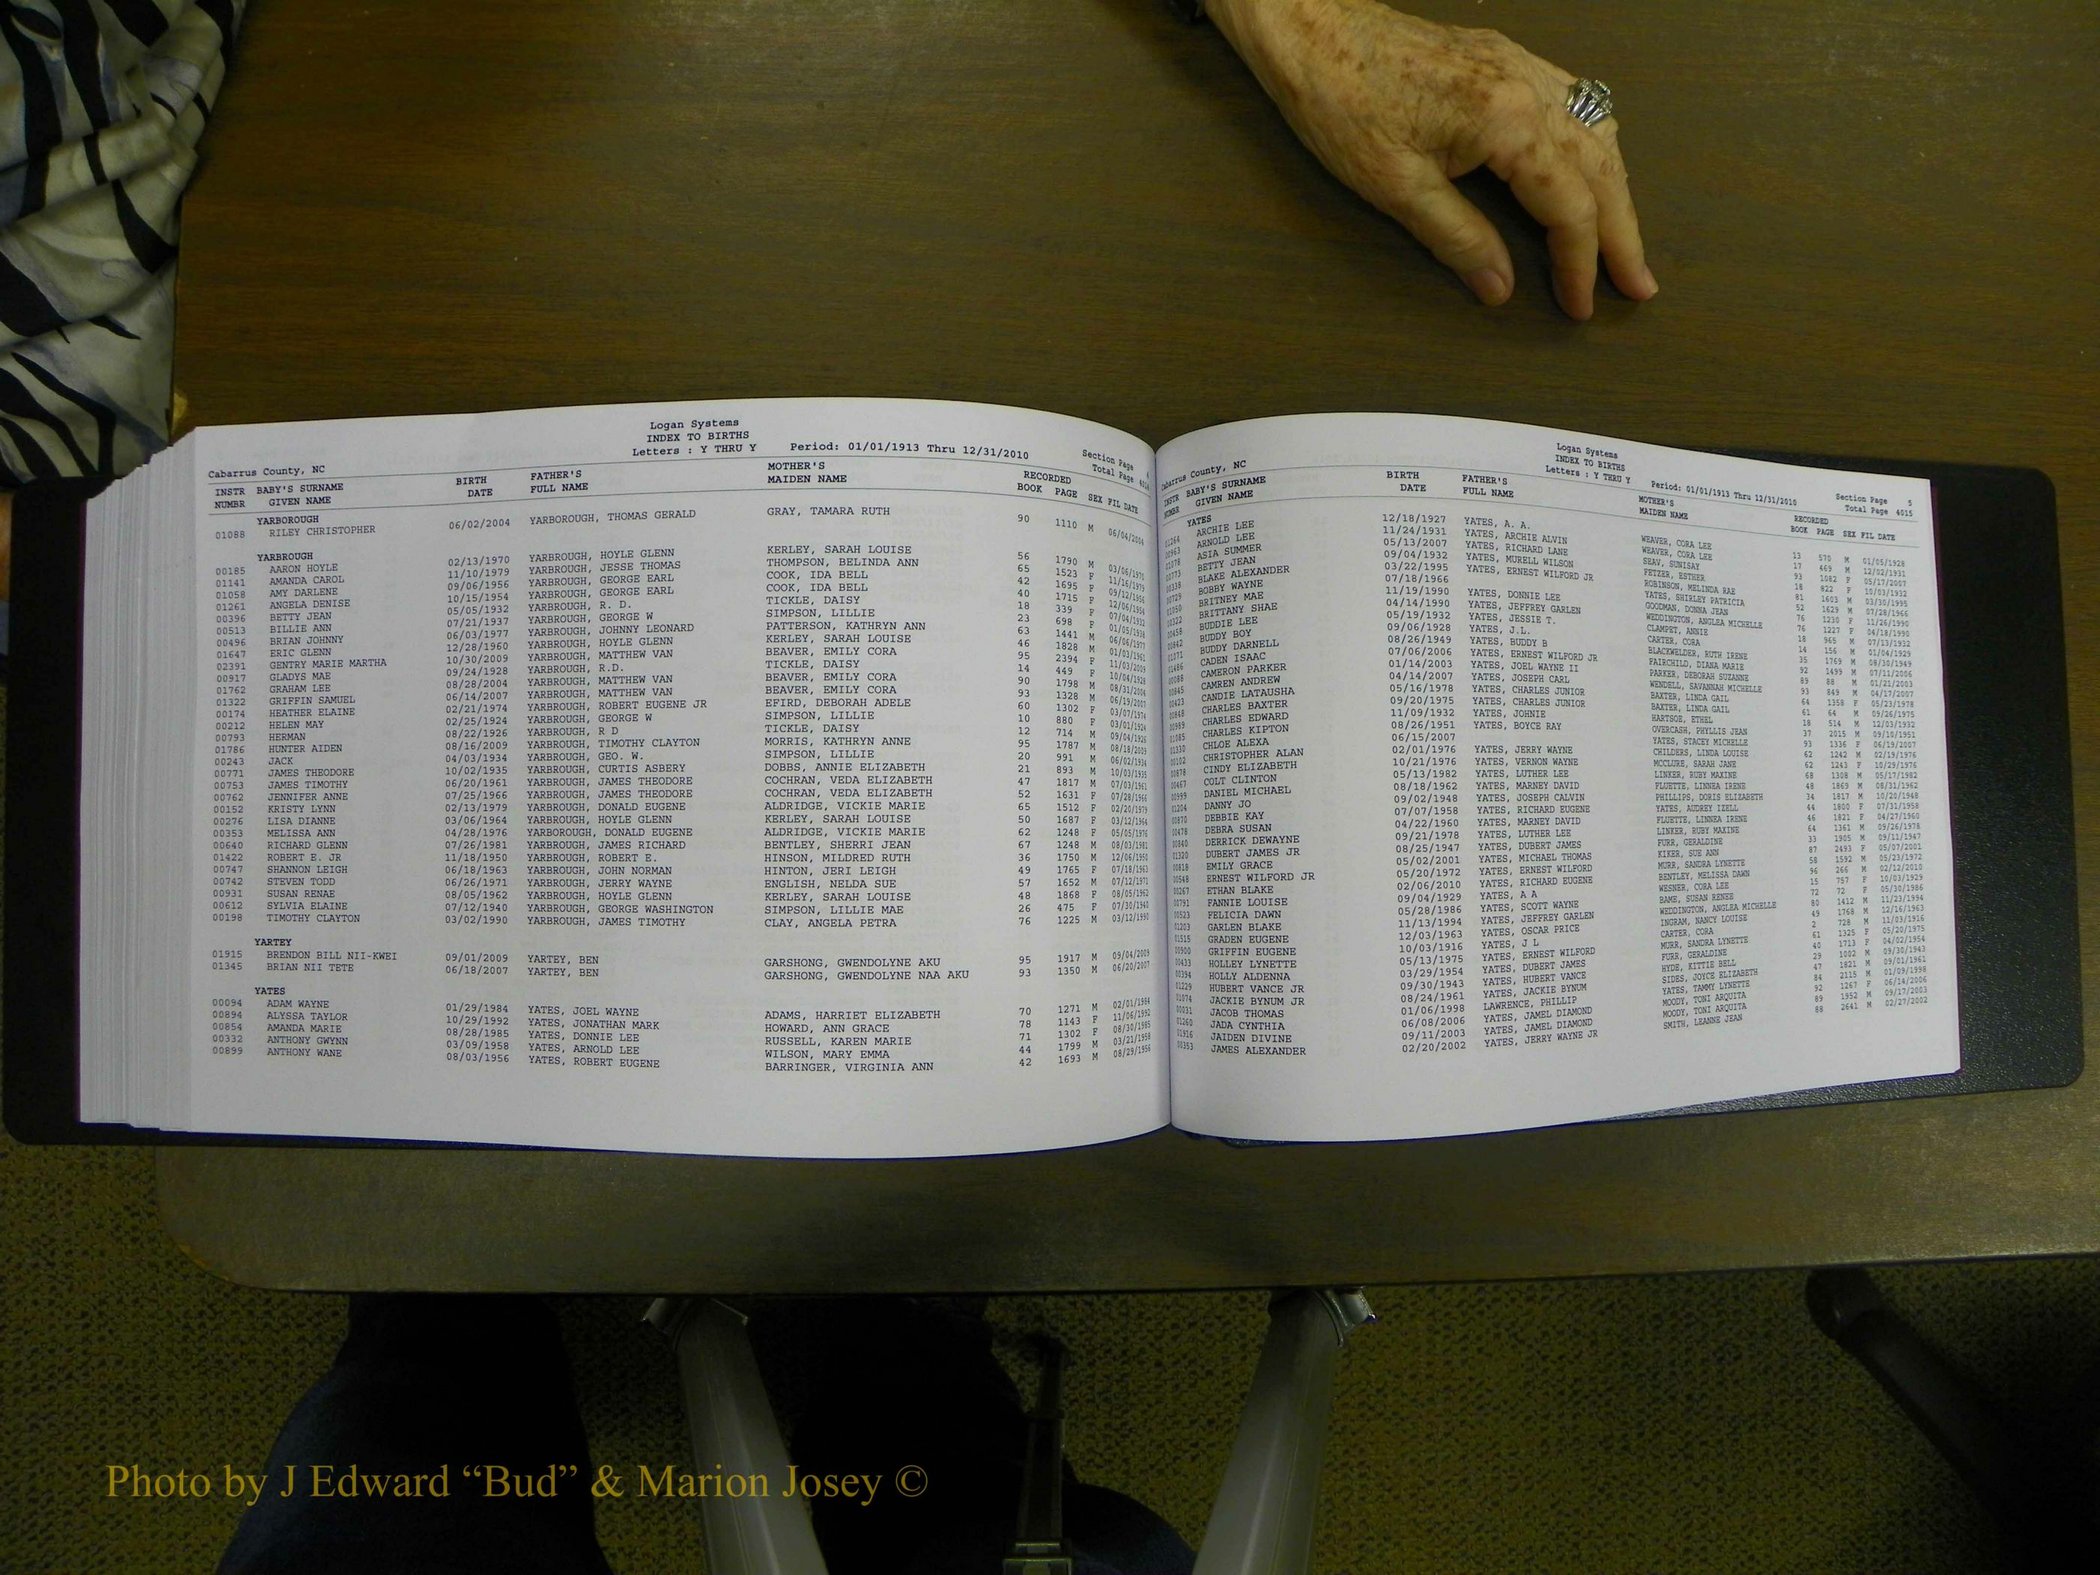 Logan Systems
INDEX TO BIRTHS
Letters : Y THRU Y Period: 01/01/1913 Thru 12/31/2010
Cabarrus County, NC Section Page 4
Total Page 4014
INSTR BABY'S SURNAME BIRTH FATHER'S MOTHER'S RECORDED
NUMBR GIVEN NAME DATE FULL NAME MAIDEN NAME BOOK PAGE SEX FIL DATE
YARBOROUGH
01088 RILEY CHRISTOPHER 06/02/2004 YARBOROUGH, THOMAS GERALD GRAY, TAMARA RUTH 90 1110 M 06/04/2004
YARBROUGH
00185 AARON HOYLE 02/13/1970 YARBROUGH, HOYLE GLENN KERLEY, SARAH LOUISE 56 1790 M 03/06/1970
01141 AMANDA CAROL 11/10/1979 YARBROUGH, JESSE THOMAS THOMPSON, BELINDA ANN 65 1523 F 11/16/1979
01058 AMY DARLENE 09/06/1956 YARBROUGH, GEORGE EARL COOK, IDA BELL 42 1695 F 09/12/1956
01261 ANGELA DENISE 10/15/1954 YARBROUGH, GEORGE EARL COOK, IDA BELL 40 1715 F 12/06/1954
00396 BETTY JEAN 05/05/1932 YARBROUGH, R. D. TICKLE, DAISY 18 339 F 07/04/1932
00513 BILLIE ANN 07/21/1937 YARBROUGH, GEORGE W SIMPSON, LILLIE 23 698 F 01/05/1938
00496 BRIAN JOHNNY 06/03/1977 YARBROUGH, JOHNNY LEONARD PATTERSON, KATHRYN ANN 63 1441 M 06/06/1977
01647 ERIC GLENN 12/28/1960 YARBROUGH, HOYLE GLENN KERLEY, SARAH LOUISE 46 1828 M 01/03/1961
02391 GENTRY MARIE MARTHA 10/30/2009 YARBROUGH, MATTHEW VAN BEAVER, EMILY CORA 95 2394 F 11/03/2009
00917 GLADYS MAE 09/24/1928 YARBROUGH, R.D. TICKLE, DAISY 14 449 F 10/04/1928
01762 GRAHAM LEE 08/28/2004 YARBROUGH, MATTHEW VAN BEAVER, EMILY CORA 90 1798 M 08/31/2004
01322 GRIFFIN SAMUEL 06/14/2007 YARBROUGH, MATTHEW VAN BEAVER, EMILY CORA 93 1328 M 06/19/2007
00174 HEATHER ELAINE 02/21/1974 YARBROUGH, ROBERT EUGENE JR EFIRD, DEBORAH ADELE 60 1302 F 03/07/1974
00212 HELEN MAY 02/25/1924 YARBROUGH, GEORGE W SIMPSON, LILLIE 10 880 F 03/01/1924
00793 HERMAN 08/22/1926 YARBROUGH, R D TICKLE, DAISY 12 714 M 09/04/1926
01786 HUNTER AIDEN 08/16/2009 YARBROUGH, TIMOTHY CLAYTON MORRIS, KATHRYN ANNE 95 1787 M 08/18/2009
00243 JACK 04/03/1934 YARBROUGH, GEO. W. SIMPSON, LILLIE 20 991 M 06/02/1934
00771 JAMES THEODORE 10/02/1935 YARBROUGH, CURTIS ASBERY DOBBS, ANNIE ELIZABETH 21 893 M 10/03/1935
00753 JAMES TIMOTHY 06/20/1961 YARBROUGH, JAMES THEODORE COCHRAN, VEDA ELIZABETH 47 1817 M 07/03/1961
00762 JENNIFER ANNE 07/25/1966 YARBROUGH, JAMES THEODORE COCHRAN, VEDA ELIZABETH 52 1631 F 07/28/1966
00152 KRISTY LYNN 02/13/1979 YARBROUGH, DONALD EUGENE ALDRIDGE, VICKIE MARIE 65 1512 F 02/20/1979
00276 LISA DIANNE 03/06/1964 YARBROUGH, HOYLE GLENN KERLEY, SARAH LOUISE 50 1687 F 03/12/1964
00353 MELISSA ANN 04/28/1976 YARBOROUGH, DONALD EUGENE ALDRIDGE, VICKIE MARIE 62 1248 F 05/05/1976
00640 RICHARD GLENN 07/26/1981 YARBROUGH, JAMES RICHARD BENTLEY, SHERRI JEAN 67 1248 M 08/03/1981
01422 ROBERT E. JR 11/18/1950 YARBROUGH, ROBERT E. HINSON, MILDRED RUTH 36 1750 M 12/06/1950
00747 SHANNON LEIGH 06/18/1963 YARBROUGH, JOHN NORMAN HINTON, JERI LEIGH 49 1765 F 07/18/1963
00742 STEVEN TODD 06/26/1971 YARBROUGH, JERRY WAYNE ENGLISH, NELDA SUE 57 1652 M 07/12/1971
00931 SUSAN RENAE 08/05/1962 YARBROUGH, HOYLE GLENN KERLEY, SARAH LOUISE 48 1868 F 08/05/1962
00612 SYLVIA ELAINE 07/12/1940 YARBROUGH, GEORGE WASHINGTON SIMPSON, LILLIE MAE 26 475 F 07/30/1940
00198 TIMOTHY CLAYTON 03/02/1990 YARBROUGH, JAMES TIMOTHY CLAY, ANGELA PETRA 76 1225 M 03/12/1990
YARTEY
01915 BRENDON BILL NII-KWEI 09/01/2009 YARTEY, BEN GARSHONG, GWENDOLYNE AKU 95 1917 M 09/04/2009
01345 BRIAN NII TETE 06/18/2007 YARTEY, BEN GARSHONG, GWENDOLYNE NAA AKU 93 1350 M 06/20/2007
YATES
00094 ADAM WAYNE 01/29/1984 YATES, JOEL WAYNE ADAMS, HARRIET ELIZABETH 70 1271 M 02/01/1984
00894 ALYSSA TAYLOR 10/29/1992 YATES, JONATHAN MARK HOWARD, ANN GRACE 78 1143 F 11/06/1992
00854 AMANDA MARIE 08/28/1985 YATES, DONNIE LEE RUSSELL, KAREN MARIE 71 1302 F 08/30/1985
00332 ANTHONY GWYNN 03/09/1958 YATES, ARNOLD LEE WILSON, MARY EMMA 44 1799 M 03/21/1958
00899 ANTHONY WANE 08/03/1956 YATES, ROBERT EUGENE BARRINGER, VIRGINIA ANN 42 1693 M 08/29/1956
Logan Systems
INDEX TO BIRTHS
Letters : Y THRU Y Period: 01/01/1913 Thru 12/31/2010
Cabarrus County, NC Section Page 5
Total Page 4015
INSTR BABY'S SURNAME BIRTH FATHER'S MOTHER'S RECORDED
NUMBR GIVEN NAME DATE FULL NAME MAIDEN NAME BOOK PAGE SEX FIL DATE
YATES
01264 ARCHIE LEE 12/18/1927 YATES, A. A. WEAVER, CORA LEE 13 570 M 01/05/1928
00963 ARNOLD LEE 11/24/1931 YATES, ARCHIE ALVIN WEAVER, CORA LEE 17 469 M 12/02/1931
01078 ASIA SUMMER 05/13/2007 YATES, RICHARD LANE SEAV, SUNISAY 93 1082 F 05/17/2007
00773 BETTY JEAN 09/04/1932 YATES, MURELL WILSON FETZER, ESTHER 18 822 F 10/03/1932
00338 BLAKE ALEXANDER 03/22/1995 YATES, ERNEST WILFORD JR ROBINSON, MELINDA RAE 81 1603 M 03/30/1995
00729 BOBBY WAYNE 07/18/1966 YATES, SHIRLEY PATRICIA 52 1629 M 07/28/1966
01050 BRITNEY MAE 11/19/1990 YATES, DONNIE LEE GOODMAN, DONNA JEAN 76 1230 F 11/26/1990
00322 BRITTANY SHAE 04/14/1990 YATES, JEFFREY GARLEN WEDDINGTON, ANGLEA MICHELLE 76 1227 F 04/18/1990
00458 BUDDIE LEE 05/19/1932 YATES, JESSIE T. CLAMPET, ANNIE 18 965 M 07/13/1932
BUDDY BOY 09/06/1928 YATES, J.L. CARTER, CORA 14 156 M 01/04/1929
01071 BUDDY DARNELL 08/26/1949 YATES, BUDDY B BLACKWELDER, RUTH IRENE 35 1769 M 08/30/1949
01486 CADEN ISAAC 07/06/2006 YATES, ERNEST WILFORD JR FAIRCHILD, DIANA MARIE 92 1499 M 07/11/2006
00088 CAMERON PARKER 01/14/2003 YATES, JOEL WAYNE II PARKER, DEBORAH SUZANNE 89 88 M 01/21/2003
00845 CAMREN ANDREW 04/14/2007 YATES, JOSEPH CARL WENDELL, SAVANNAH MICHELLE 93 849 M 04/17/2007
00423 CANDIE LATAUSHA 05/16/1978 YATES, CHARLES JUNIOR BAXTER, LINDA GAIL 64 1358 F 05/23/1978
00848 CHARLES BAXTER 09/20/1975 YATES, CHARLES JUNIOR BAXTER, LINDA GAIL 61 64 M 09/26/1975
00989 CHARLES EDWARD 11/09/1932 YATES, JOHNIE HARTSOE, ETHEL 18 514 M 12/03/1932
01085 CHARLES KIPTON 08/26/1951 YATES, BOYCE RAY OVERCASH, PHYLLIS JEAN 37 2015 M 09/10/1951
01330 CHLOE ALEXA 06/15/2007 YATES, STACEY MICHELLE 93 1336 F 06/19/2007
00102 CHRISTOPHER ALAN 02/01/1976 YATES, JERRY WAYNE CHILDERS, LINDA LOUISE 62 1242 M 02/19/1976
00878 CINDY ELIZABETH 10/21/1976 YATES, VERNON WAYNE MCCLURE, SARAH JANE 62 1243 F 10/29/1976
00467 COLT CLINTON 05/13/1982 YATES, LUTHER LEE LINKER, RUBY MAXINE 68 1308 M 05/17/1982
00999 DANIEL MICHAEL 08/18/1962 YATES, MARNEY DAVID FLUETTE, LINNEA IRENE 48 1869 M 08/31/1962
01204 DANNY JO 09/02/1948 YATES, JOSEPH CALVIN PHILLIPS, DORIS ELIZABETH 34 1817 M 10/20/1948
00870 DEBBIE KAY 07/07/1958 YATES, RICHARD EUGENE YATES, AUDREY IZELL 44 1800 F 07/31/1958
00478 DEBRA SUSAN 04/22/1960 YATES, MARNEY DAVID FLUETTE, LINNEA IRENE 46 1821 F 04/27/1960
00840 DERRICK DEWAYNE 09/21/1978 YATES, LUTHER LEE LINKER, RUBY MAXINE 64 1361 M 09/26/1978
01320 DUBERT JAMES JR 08/25/1947 YATES, DUBERT JAMES FURR, GERALDINE 33 1905 M 09/11/1947
00818 EMILY GRACE 05/02/2001 YATES, MICHAEL THOMAS KIKER, SUE ANN 87 2493 F 05/07/2001
00548 ERNEST WILFORD JR 05/20/1972 YATES, ERNEST WILFORD MURR, SANDRA LYNETTE 58 1592 M 05/23/1972
00267 ETHAN BLAKE 02/06/2010 YATES, RICHARD EUGENE BENTLEY, MELISSA DAWN 96 266 M 02/12/2010
00791 FANNIE LOUISE 09/04/1929 YATES, A A WESNER, CORA LEE 15 757 F 10/03/1929
00523 FELICIA DAWN 05/28/1986 YATES, SCOTT WAYNE BAME, SUSAN RENEE 72 72 F 05/30/1986
01203 GARLEN BLAKE 11/13/1994 YATES, JEFFREY GARLEN WEDDINGTON, ANGLEA MICHELLE 80 1412 M 11/23/1994
01515 GRADEN EUGENE 12/03/1963 YATES, OSCAR PRICE INGRAM, NANCY LOUISE 49 1768 M 12/16/1963
00900 GRIFFIN EUGENE 10/03/1916 YATES, J L CARTER, CORA 2 728 M 11/03/1916
00433 HOLLEY LYNETTE 05/13/1975 YATES, ERNEST WILFORD MURR, SANDRA LYNETTE 61 1325 F 05/20/1975
00394 HOLLY ALDENNA 03/29/1954 YATES, DUBERT JAMES FURR, GERALDINE 40 1713 F 04/02/1954
01229 HUBERT VANCE JR 09/30/1943 YATES, HUBERT VANCE HYDE, KITTIE BELL 29 1002 M 09/30/1943
01074 JACKIE BYNUM JR 08/24/1961 YATES, JACKIE BYNUM SIDES, JOYCE ELIZABETH 47 1821 M 09/01/1961
00031 JACOB THOMAS 01/06/1998 LAWRENCE, PHILLIP YATES, TAMMY LYNETTE 84 2115 M 01/09/1998
01260 JADA CYNTHIA 06/08/2006 YATES, JAMEL DIAMOND MOODY, TONI ARQUITA 92 1267 F 06/14/2006
01916 JAIDEN DIVINE 09/11/2003 YATES, JAMEL DIAMOND MOODY, TONI ARQUITA 89 1952 M 09/17/2003
00353 JAMES ALEXANDER 02/20/2002 YATES, JERRY WAYNE JR SMITH, LEANNE JEAN 88 2641 M 02/27/2002
Photo by J Edward “Bud” & Marion Josey ©